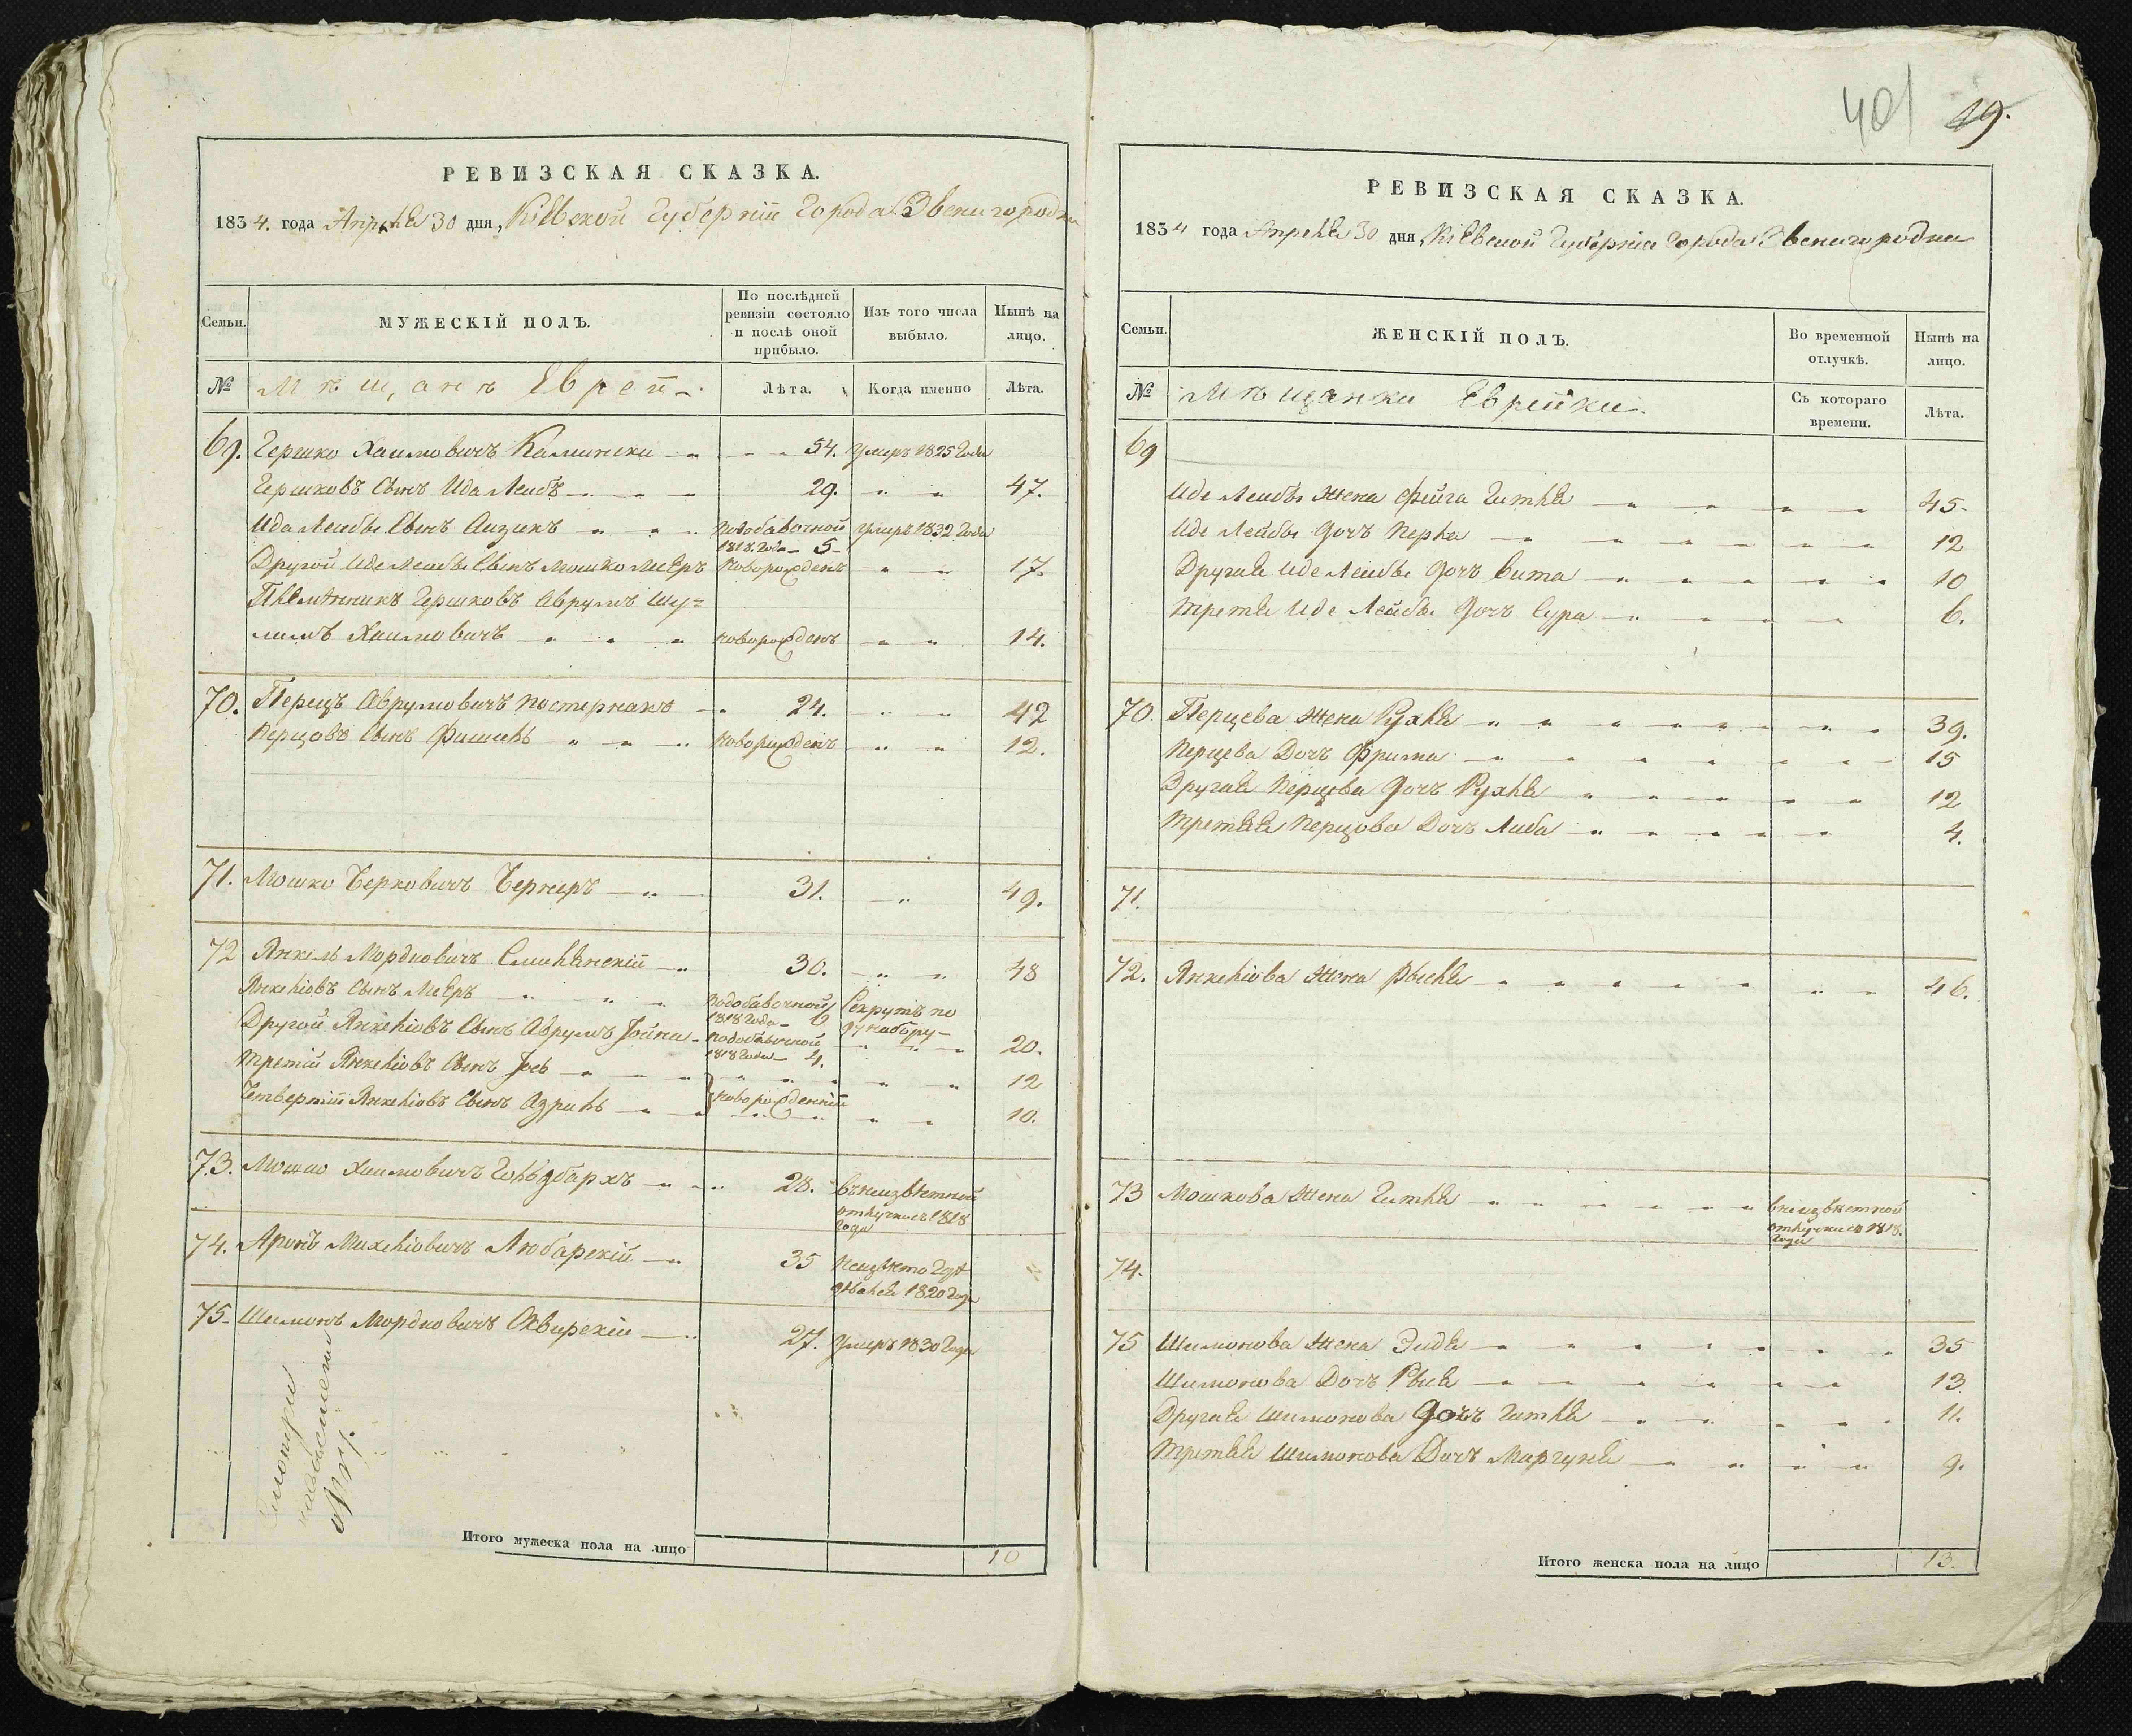 РЕВИЗСКАЯ СКАЗКА.
1834. года Апреля 30 дня, Кіевской Губерніи Города Звенигородки
Семьи.
МУЖЕСКІЙ ПОЛЪ.
По послѣдней ревизіи состояло и послѣ оной прибыло.
Изъ того числа выбыло.
Нынѣ на лицо.
№
Мѣщанъ Еврей
Лѣта.
Когда именно
Лѣта.
69. Гершко Хаимовичъ Камински 54. Умеръ 1825 Года
Гершковъ Сынъ Ида Лейбъ 29. 47.
Ида Лейбы Сынъ Аизикъ подобавочной 1818. Года 5 Умеръ 1832 Года
Другой Иде Лейбы Сынъ Мошко Меѣръ новорожденъ 17.
Племянникъ Гершковъ Аврумъ Шу=
лимъ Хаимовичъ новорожденъ 14.
70. Перецъ Аврумовичъ Постернакъ 24. 42
Перцовъ Сынъ Фишель новорожденъ 12.
71. Мошко Берковичъ Бернеръ 31. 49.
72 Янкель Мордковичъ Смилянскій 30. 48
Янкеліовъ Сынъ Меѣръ подобавочной 1818 Года 6 Рекрутъ по 97 набору
Другой Янкеліовъ Сынъ Аврумъ Іойна подобавочной 1818 Года 4. 20.
Третій Янкеліовъ Сынъ Іось 12
Четвертій Янкеліовъ Сынъ Азриль новорожденній 10.
73. Мошко Хаимовичъ Гольдбархъ 28. въ неизвѣстной отлучки съ 1818 Года
74. Аронъ Михеліовичъ Любарскій 35 Неизвѣсто Гдѣ дѣвался 1820 Года
75. Шимонъ Мордковичъ Сквирскій 27. Умеръ 1830 Года
Итого мужеска пола на лицо 10
401 19.
РЕВИЗСКАЯ СКАЗКА.
1834 года Апреля 30 дня, Кіевской Губерніи Города Звенигородки
Семьи.
ЖЕНСКІЙ ПОЛЪ.
Во временной отлучкѣ.
Нынѣ на лицо.
№
Мѣщанки Еврейки.
Съ котораго времени.
Лѣта.
69
Иде Лейбы Жена Фейга Гитля 45.
Иде Лейбы Дочъ Перла 12
Другая Иде Лейбы Дочъ Вита 10
Третя Иде Лейбы Дочъ Сура 6.
70. Перцева Жена Рухля 39.
Перцева Дочъ Фрима 15
Другая Перцева Дочъ Рухля 12
Третяя Перцова Дочъ Либа 4.
71.
72. Янкеліова Жена Рысля 46.
73 Мошкова Жена Гитля в неизвѣстной отлучки съ 1818. Года
74.
75 Шимонова Жена Эидя 35
Шимонова Дочъ Рыся 13.
Другая Шимонова Дочъ Гитля 11.
Третяя Шимонова Дочъ Маргуля 9.
Итого женска пола на лицо 13.